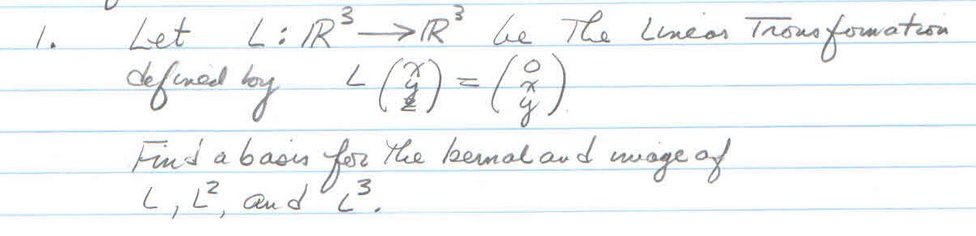 1. Let L : ℝ³ → ℝ³ be the Linear Transformation
defined by L (x y z) = (0 x y).
Find a basis for the kernal and image of
L, L², and L³.